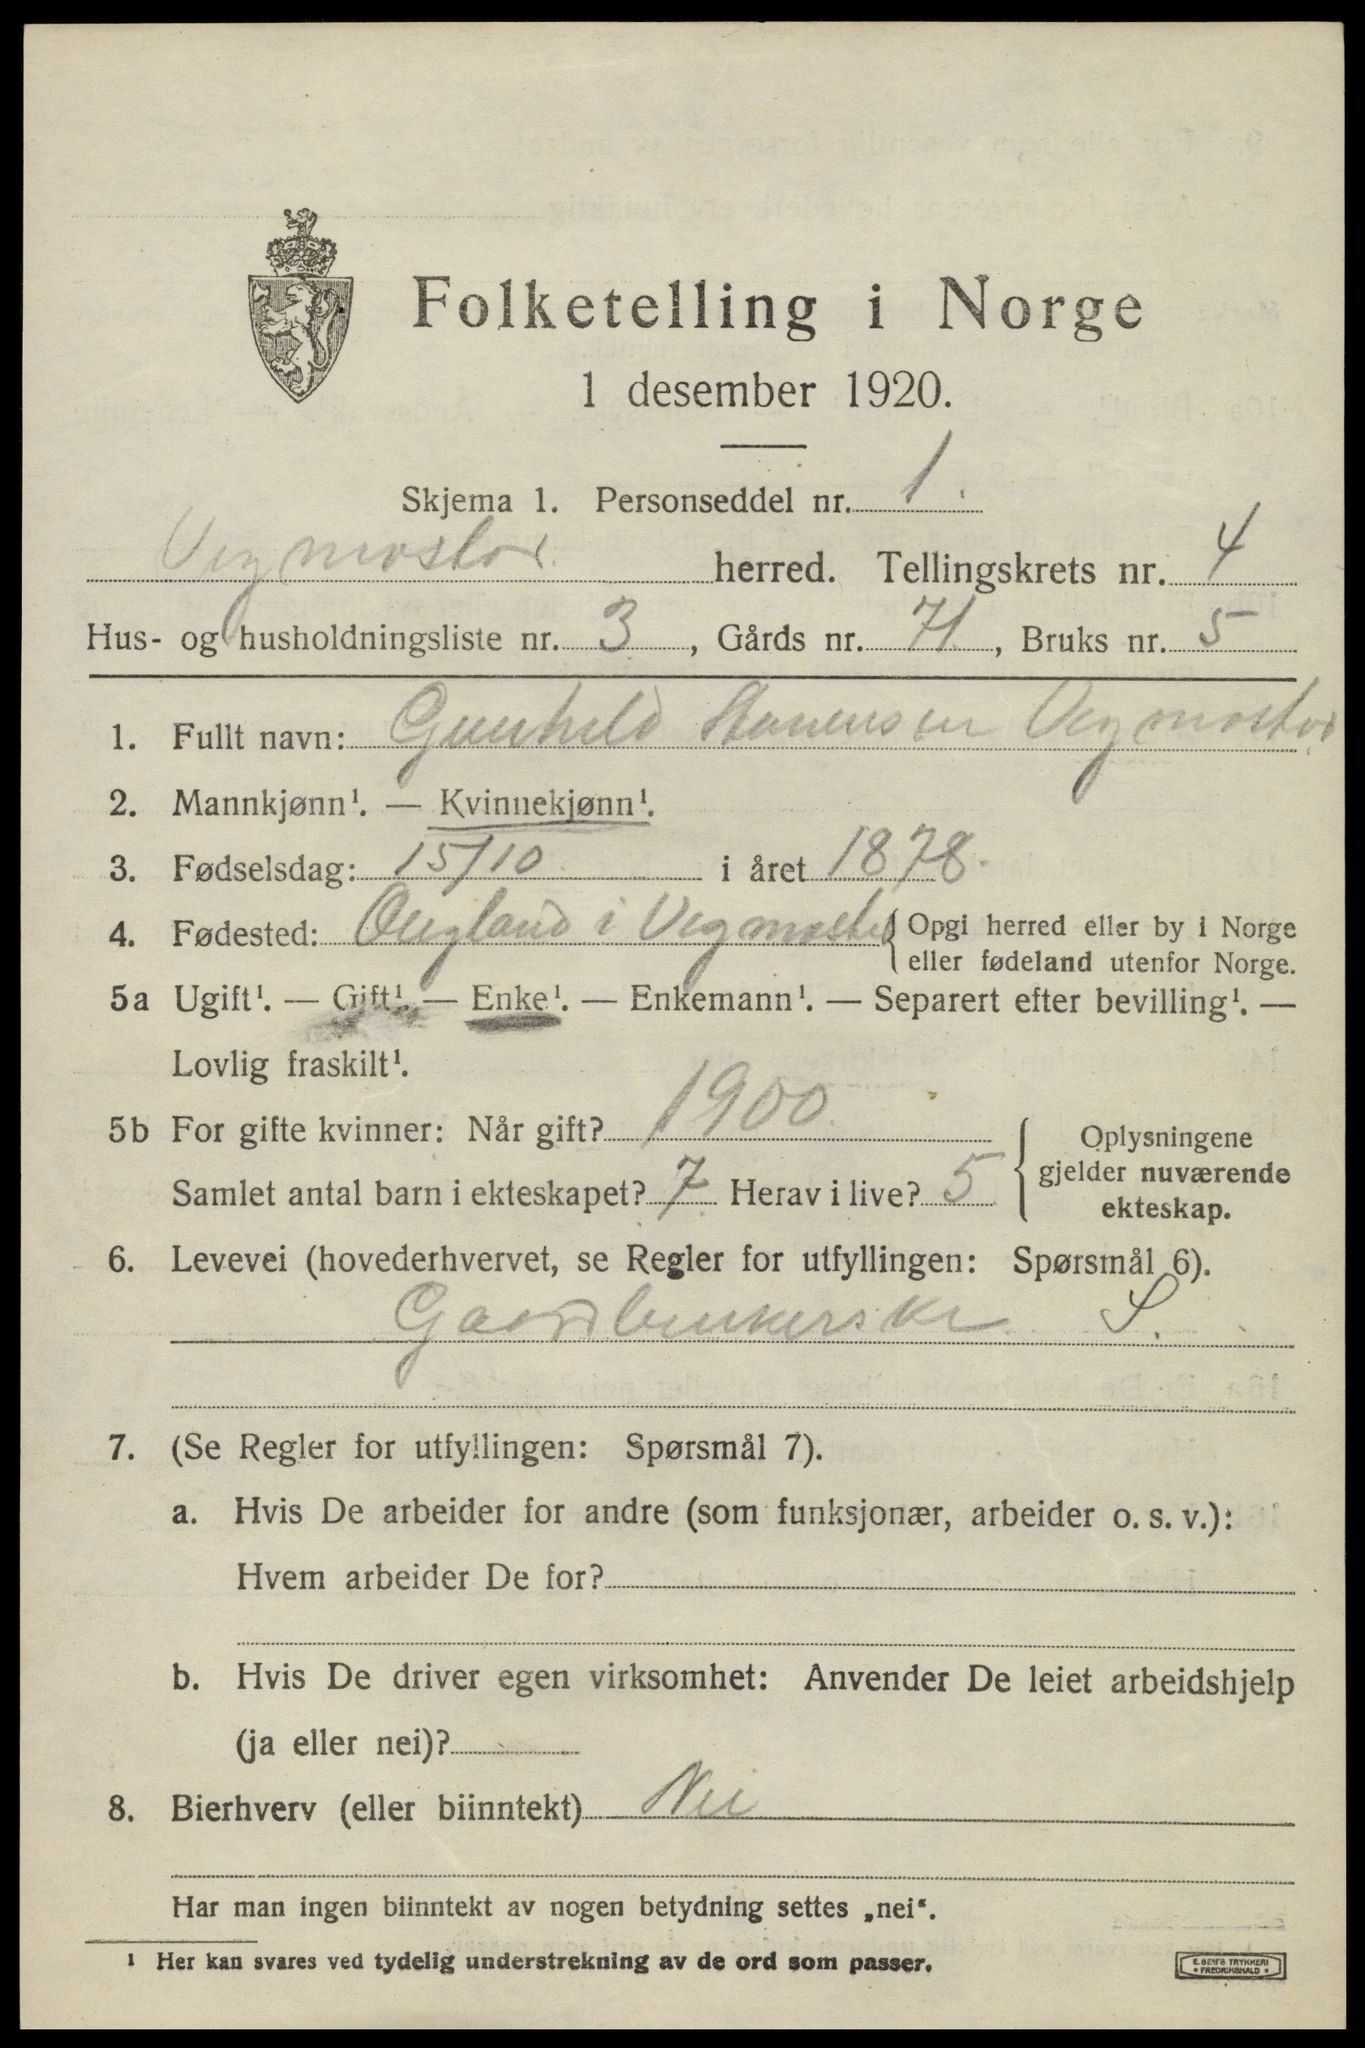 Folketelling i Norge
1 desember 1920.
Skjema 1. Personseddel nr. 1.
Vegmostad herred. Tellingskrets nr. 4
Hus- og husholdningsliste nr. 3, Gårds nr. 71, Bruks nr. 5
1. Fullt navn: Gunhild Vegmostad
2. Mannkjønn¹. — Kvinnekjønn¹.
3. Fødselsdag: 15/10 i året 1878.
4. Fødested: i Vegmostad { Opgi herred eller by i Norge
eller fødeland utenfor Norge.
5a Ugift¹. — Gift¹. — Enke¹. — Enkemann¹. — Separert efter bevilling¹. —
Lovlig fraskilt¹.
5b For gifte kvinner: Når gift? 1900
Samlet antal barn i ekteskapet? 7 Herav i live? 5
{ Oplysningene
gjelder nuværende
ekteskap.
6. Levevei (hovederhvervet, se Regler for utfyllingen: Spørsmål 6).
Gaardbrukerske S.
7. (Se Regler for utfyllingen: Spørsmål 7).
a. Hvis De arbeider for andre (som funksjonær, arbeider o. s. v.):
Hvem arbeider De for?
b. Hvis De driver egen virksomhet: Anvender De leiet arbeidshjelp
(ja eller nei)?
8. Bierhverv (eller biinntekt) Nei
Har man ingen biinntekt av nogen betydning settes „nei“.
¹ Her kan svares ved tydelig understrekning av de ord som passer.
E. SEMS TRYKKERI
• FREDRIKSHALD •